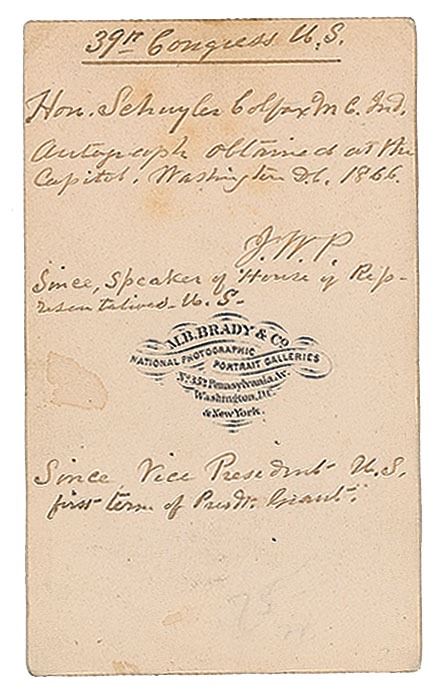 39th Congress U.S.
Hon. Schuyler Colfax M C. Ind.
Autograph obtained at the
Capitol, Washington D.C. 1866.
J. W. P.
Since, Speaker of House of Rep-
resentatives U.S.
M.B. BRADY & Co.
NATIONAL PHOTOGRAPHIC
PORTRAIT GALLERIES
No. 352 Pennsylvania Av.
Washington, D.C.
& New York.
Since Vice President U.S.
first term of Presdt. Grant.